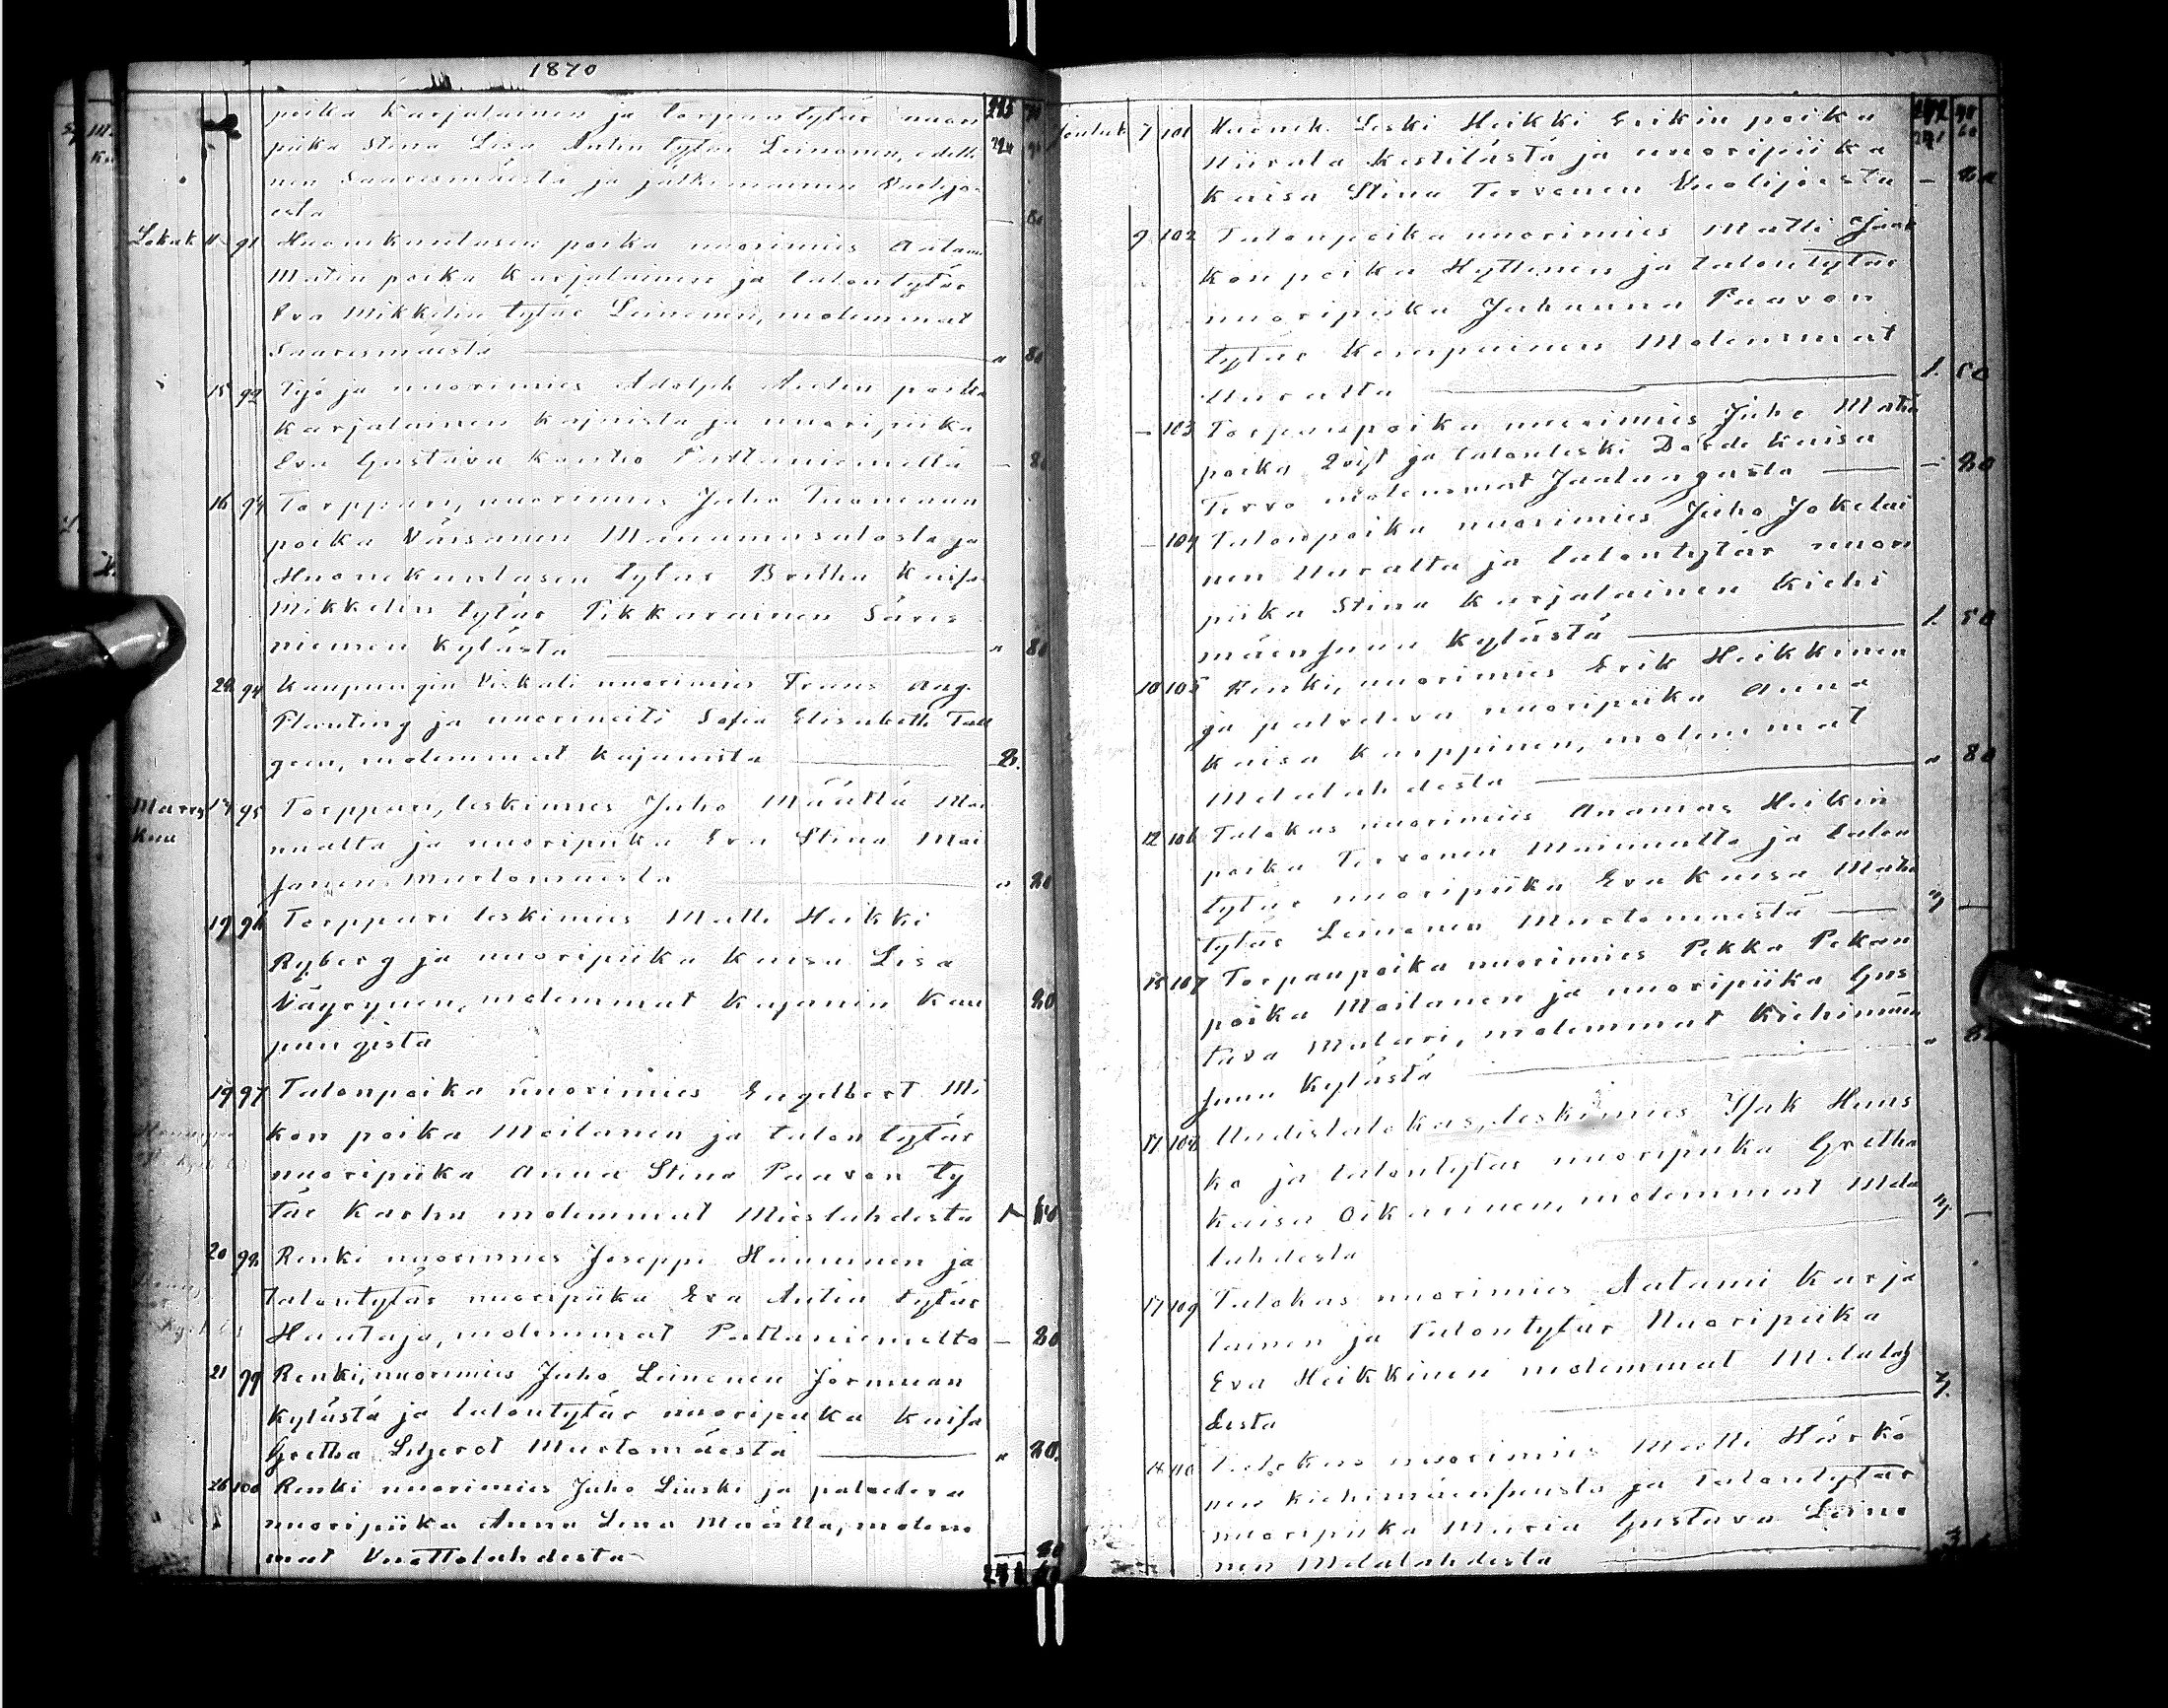 1870
poika Karjalainen ja torpantytär nuori
piika Stina Lisa Antin tytär Leinonen, edelli
nen Saaresmäestä ja jälkimäinen Vuolijo
esta — 80
Lokak 11 91 Huonekuntasen poika nuorimies Aatami
Matin poika Karjalainen ja talontytär
Eva Mikkelin tytär Leinonen, molemmat
Saaresmäestä " 80
15 92 Työ ja nuorimies Adolph Antin poika
Karjalainen Kajaista ja nuoripiika
Eva Gustava Kauho Paltaniemeltä — 80
16 93 Torppari, nuorimies Juho Tuomaan
poika Väisänen Manamansalosta ja
Huonekuntasen tytär Britha Kaisa
Mikkelin tytär Tikkarainen Säräs
niemen Kylästä " 80
22 94 Kaupungin Viskali nuorimies Frans Aug.
Planting ja nuorineiti Sofia Elisabeth Tall
gren, molemmat Kajanista 2.
Marras 17 95 Torppari, leskimies Juho Määttä Mai
kuu nualta ja nuoripiika Eva Stina Moi
janen Muetomäestä " 80
19 96 Torppari leskimies Matti Heikki
Ryberg ja nuoripiika Kaisa Lisa
Väyrynen, molemmat Kajanin Kau 80
pungista
19 97 Talonpoika nuorimies Engelbert Mi
kon poika Moilanen ja talontytär
nuoripiika Anna Stina Paavon ty
tär Karhu molemmat Mieslahdesta 1 60
20 98 Renki nuorimies Joseppi Huurinen ja
talontytär nuoripiika Eva Antin tytär
Hautajo, molemmat Paltaniemeltä — 80
21 99 Renki, nuorimies Juho Leinonen Jormuan
Kylästä ja talontytär nuoripiika Kaisa
Gretha Liljerot Muetomäestä " 80.
26 100 Renki nuorimies Juho Linski ja palveleva
nuoripiika Anna Lena Määttä, molem
mat Vuottolahdesta — 80
Jouluk 7 101 Huonek. Leski Heikki Erikin poika
Niirala Kestilästä ja nuoripiika
Kaisa Stina Tervonen Vuolijoesta — 80
9 102 Talonpoika nuorimies Matti Jaak
kon poika Hyttinen ja talontytär
nuoripiika Johanna Paavon
tytär Kemppainen Molemmat
Uuralta 1. 50
— 103 Torpanpoika nuorimies Juho Matin
poika Qvist ja talonleski Dorde Kaisa
Tervo molemmat Jaalangasta — 80
— 104 Talonpoika nuorimies Juho Jokelai
nen Uuralta ja talontytär nuori
piika Stina Karjalainen Kiehi
mäensuun Kylästä 1. 50
10 105 Renki, nuorimies Erik Heikkinen
ja palveleva nuoripiika Anna
Kaisa Karppinen, molemmat
Melalahdesta " 80
12 106 Talokas nuorimies Ananias Heikin
poika Tervonen Mainualta ja talon
tytär nuoripiika Eva Kaisa Matin
tytär Leinonen Muetomäestä —
15 107 Torpanpoika nuorimies Pekka Pekan
poika Moilanen ja nuoripiika Gus
tava Mulari, molemmat Kiehimäen
suun Kylästä " 80
17 108 Uudistalokas, leskimies Isak Huus
ko ja talontytär nuoripiika Gretha
Kaisa Oikarinen, molemmat Mela
lahdesta —
17 109 Talokas nuorimies Aatami Karja
lainen ja Talontytär Nuoripiika
Eva Heikkinen molemmat Melalah
desta
18 110 Talokas nuorimies Matti Härkö
nen Kiehimäensuusta ja Talontytär
nuoripiika Maria Gustava Leino
nen Melalahdesta